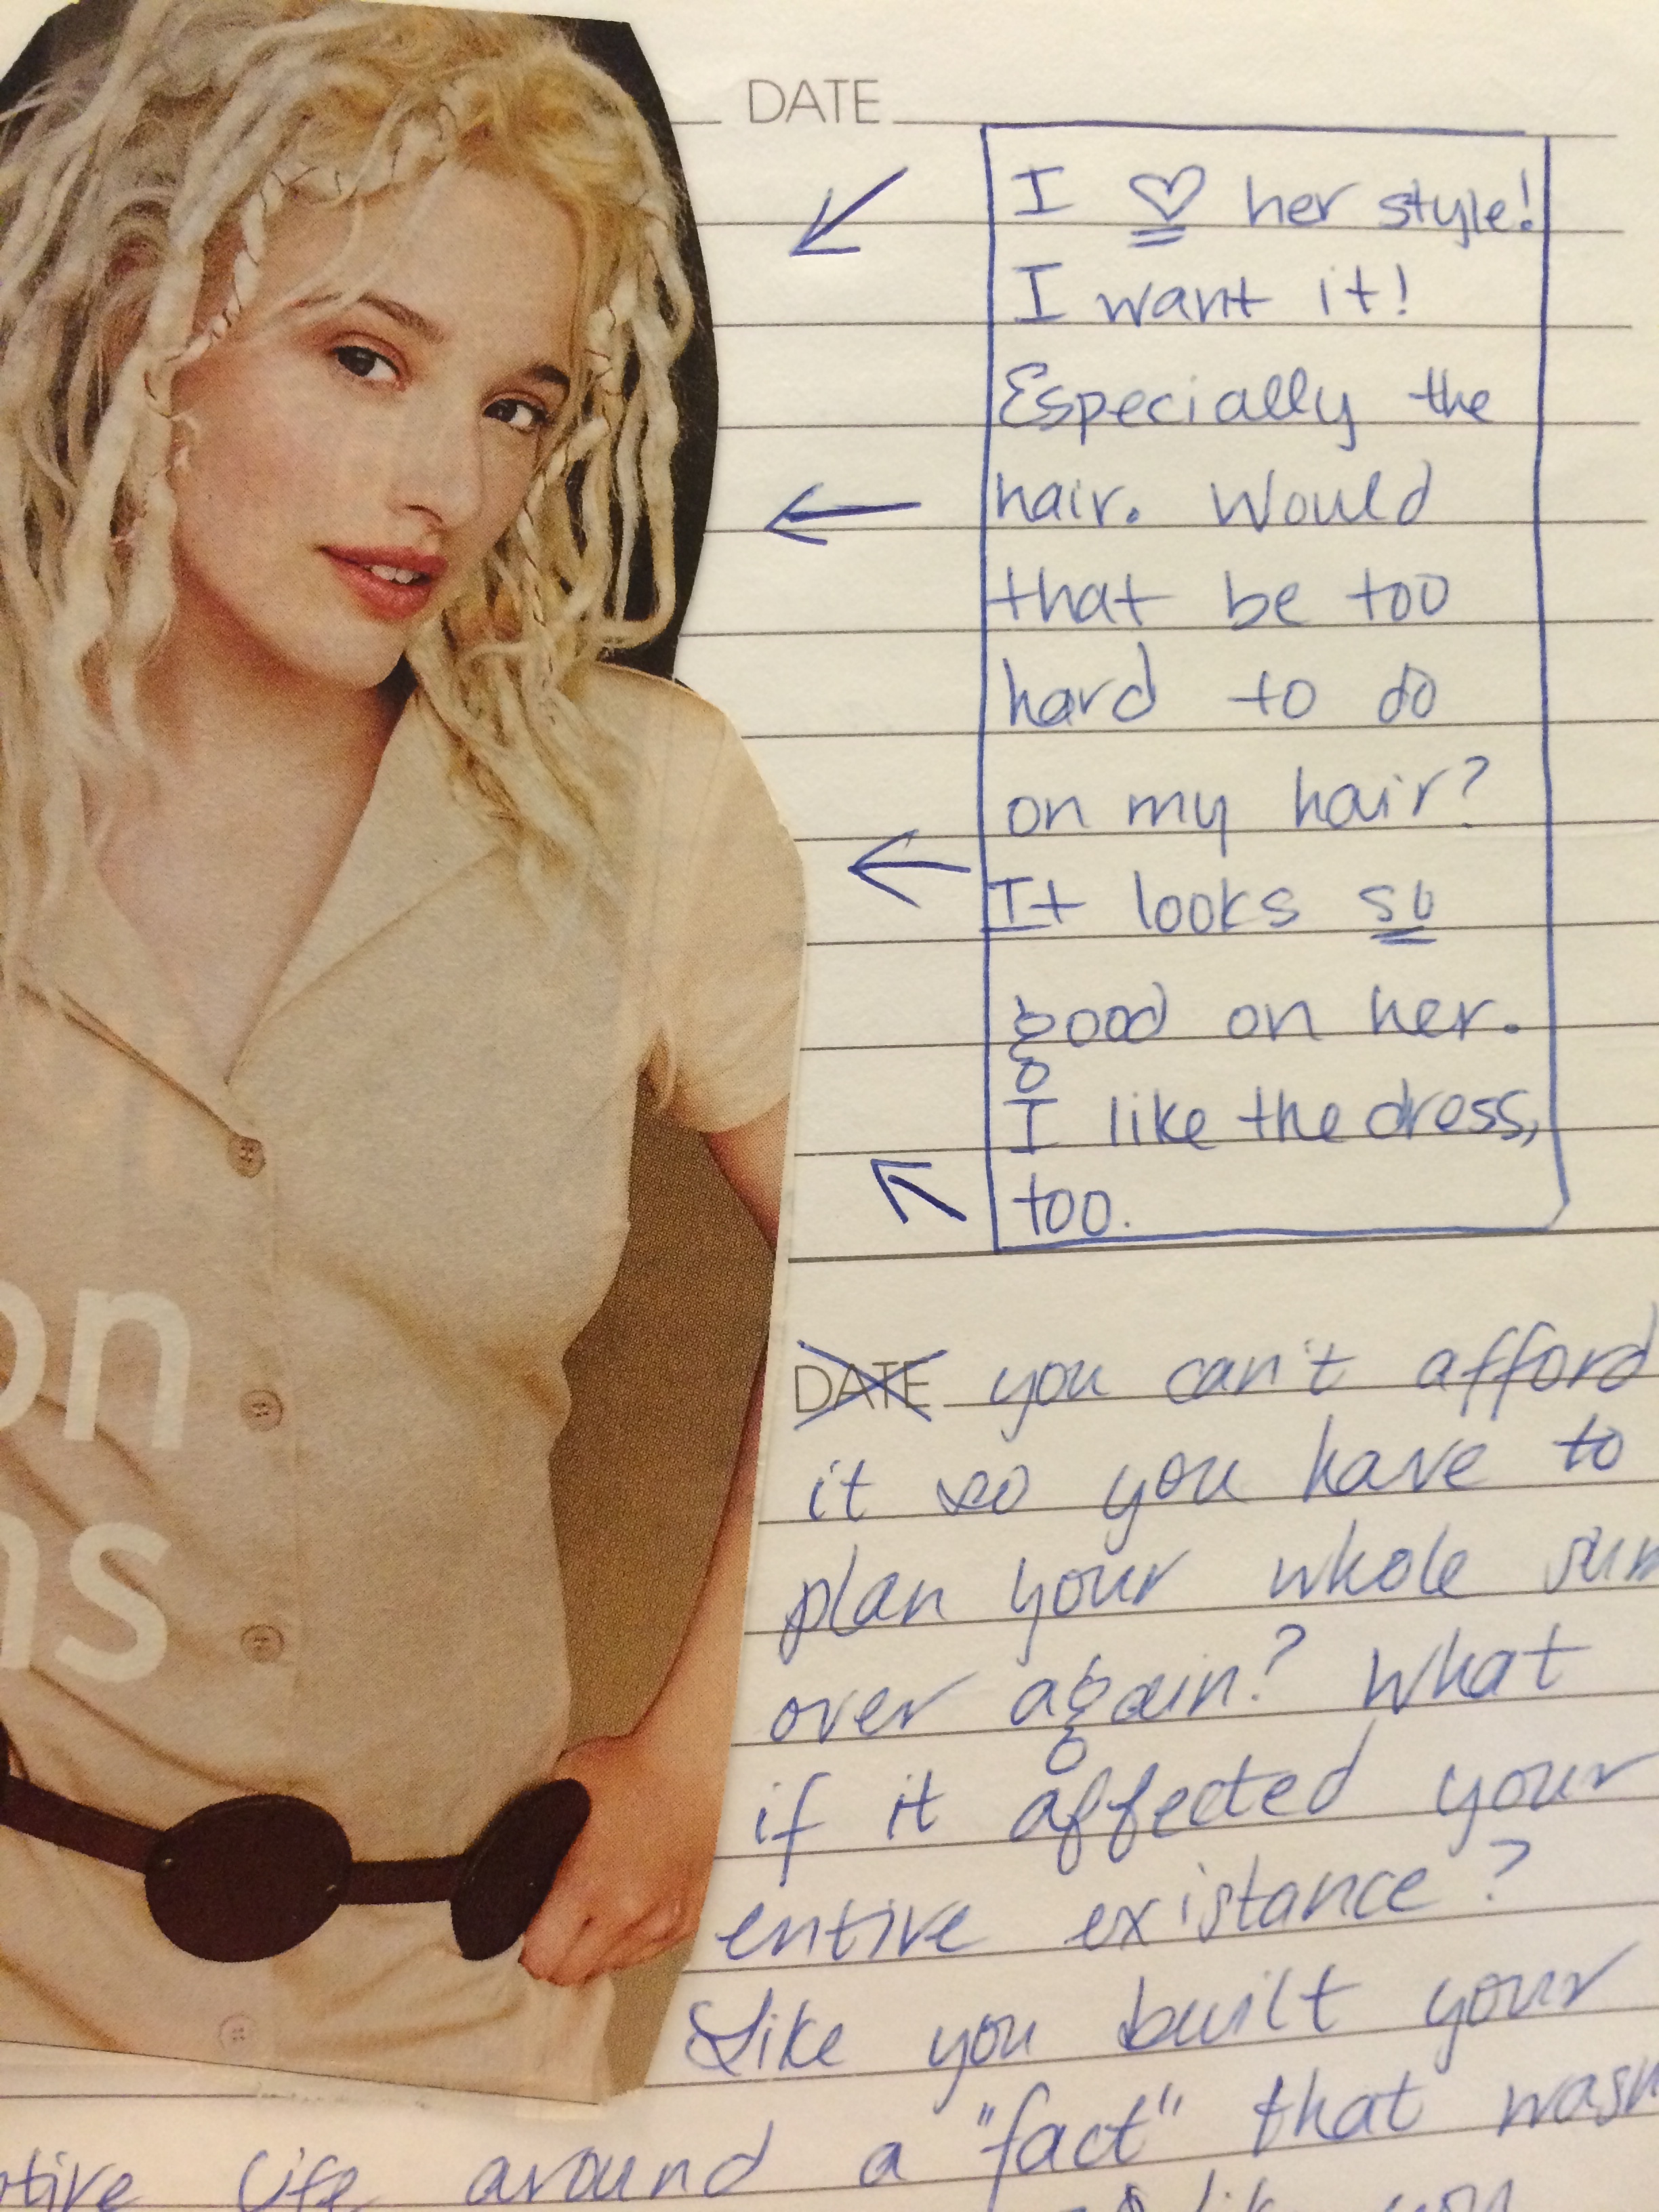 DATE
I ♡ her style!
I want it!
Especially the
hair. Would
that be too
hard to do
on my hair?
It looks so
good on her.
I like the dress,
too.
on
ns
DATE you can't afford
it so you have to
plan your whole sum
over again? What
if it affected your
entire existance?
Like you built your
ntire life around a "fact" that wasn
like you